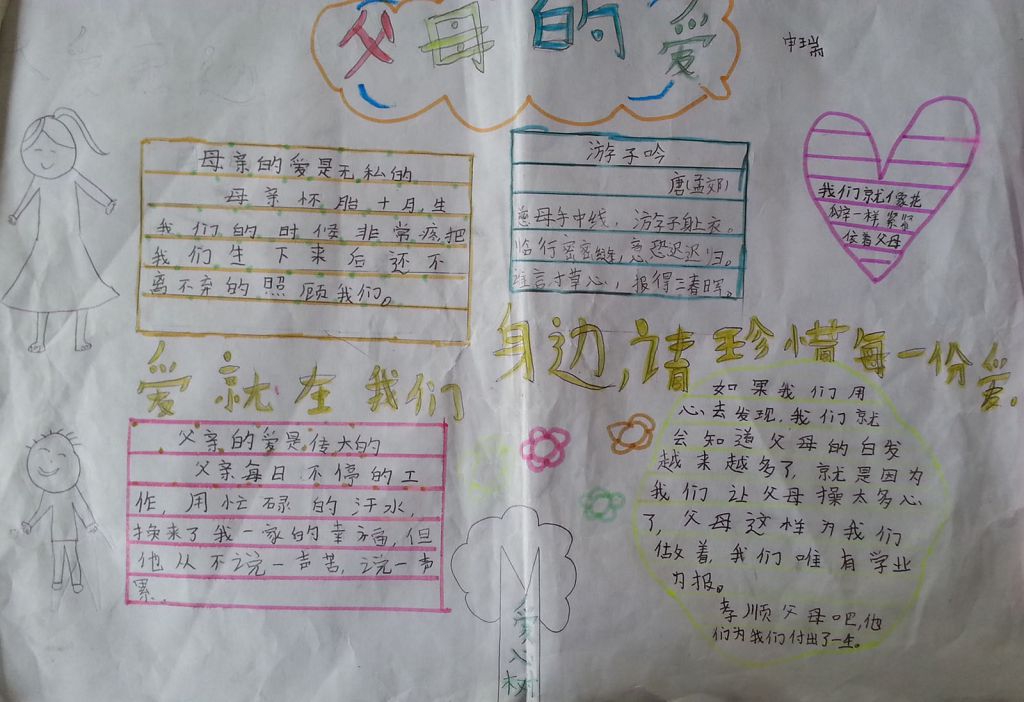 父母的爱
申瑞
母亲的爱是无私的
母亲怀胎十月,生
我们的时候非常疼,把
我们生下来后还不
离不弃的照顾我们。
游子吟
唐(孟郊)
慈母手中线,游子身上衣。
临行密密缝,意恐迟迟归。
谁言寸草心,报得三春晖。
我们就像花
和字一样紧紧
依着父母
爱就在我们身边,请珍惜每一份爱。
父亲的爱是伟大的
父亲每日不停的工
作,用忙碌的汗水,
换来了我一家的幸福,但
他从不说一声苦,说一声
累。
如果我们用
心去发现,我们就
会知道父母的白发
越来越多了,就是因为
我们让父母操太多心
了,父母这样为我们
做着,我们唯有学业
为报。
孝顺父母吧,他
们为我们付出了一生。
爱
人
树